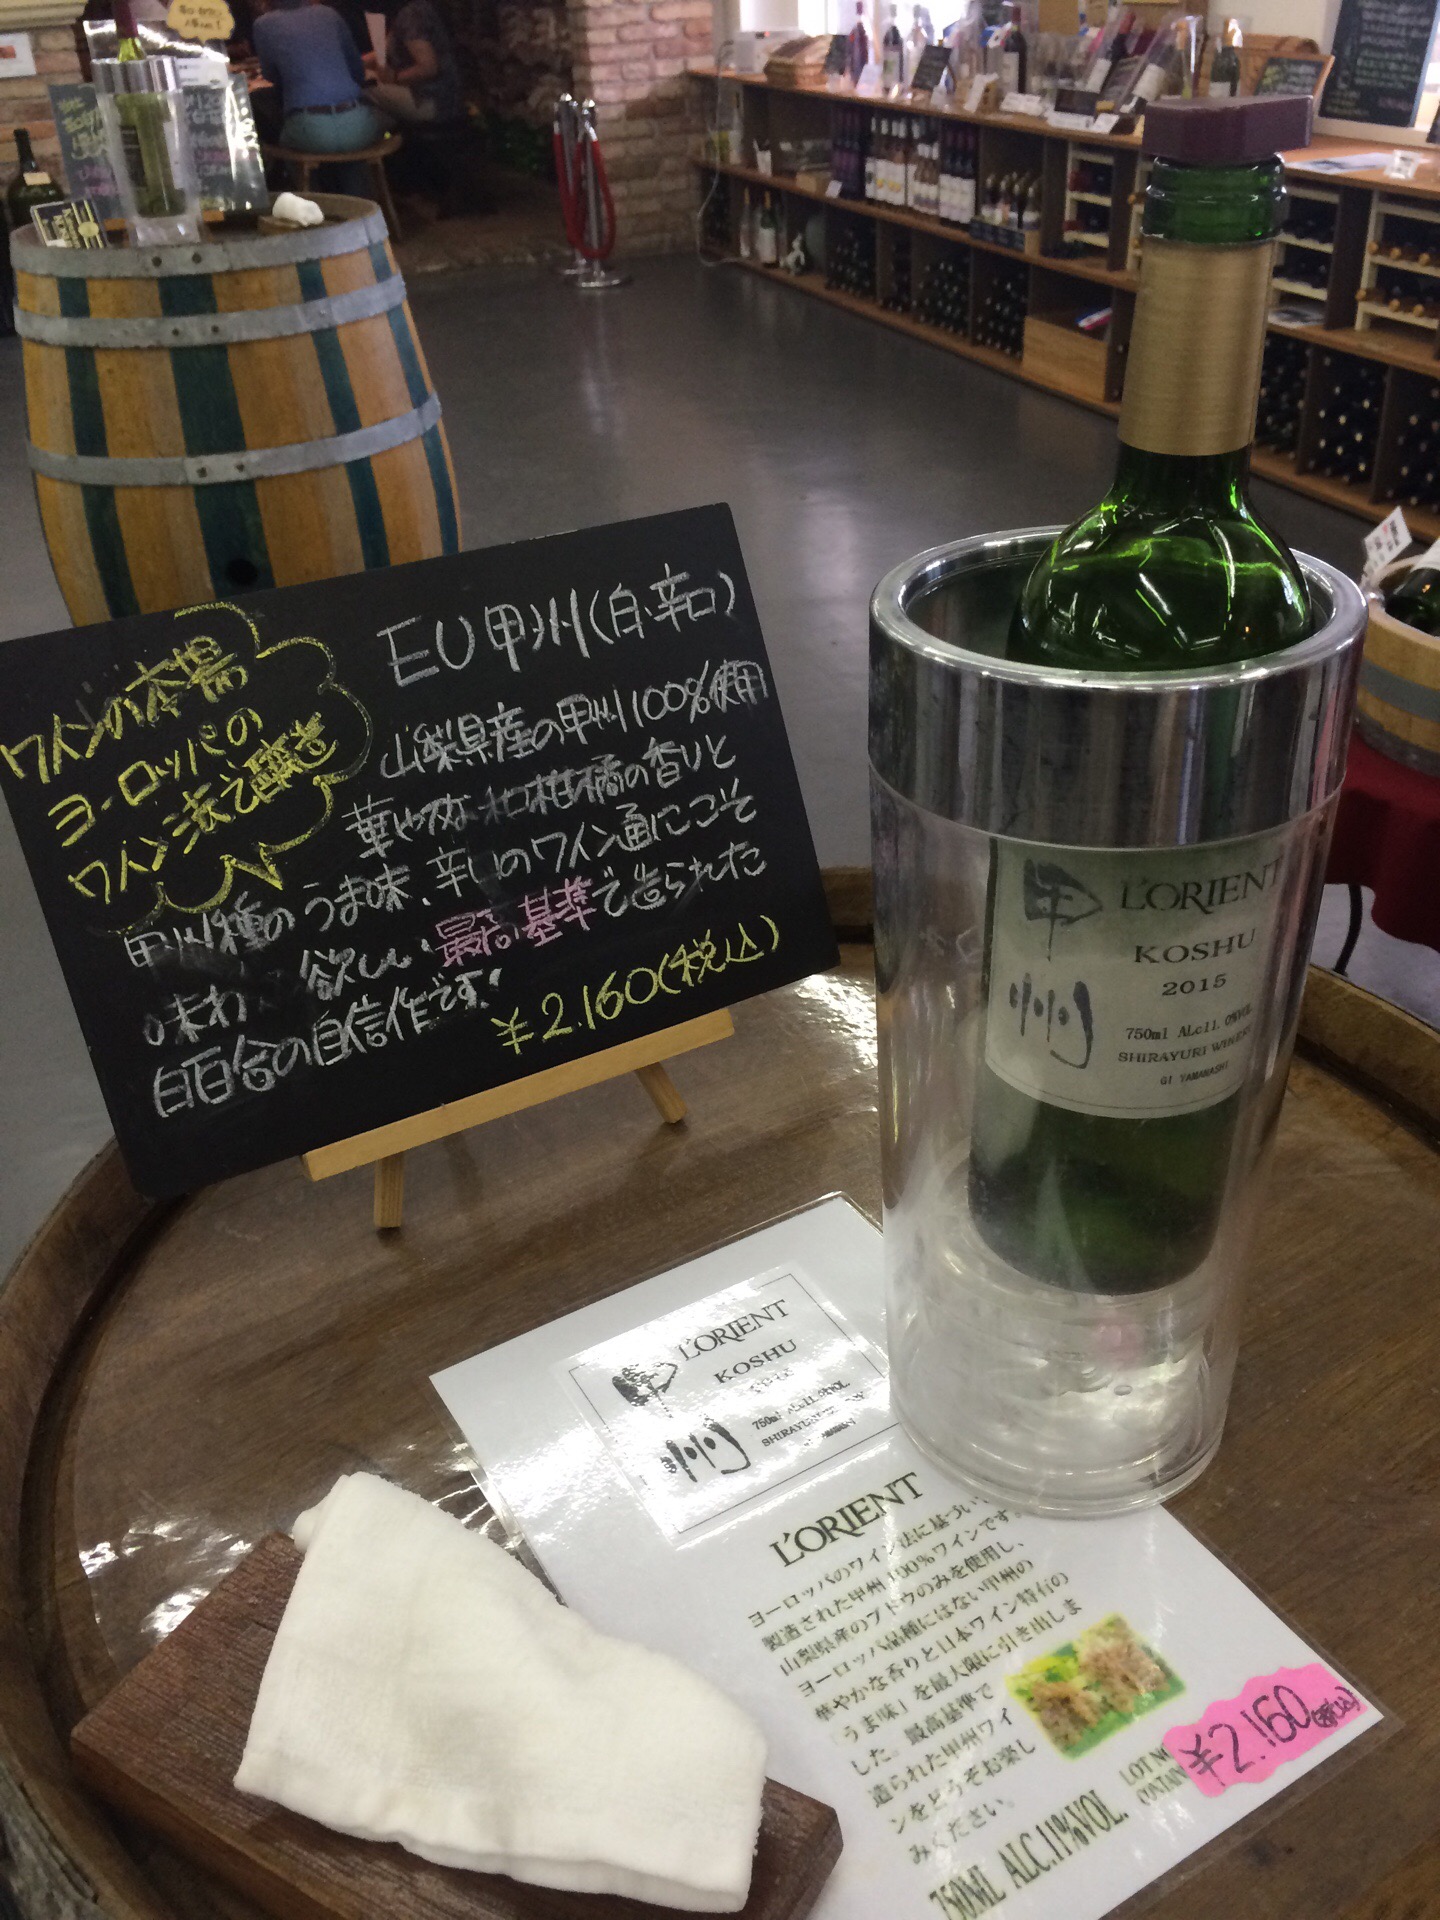 ワインの本場
ヨーロッパの
ワイン法で醸造
EU甲州(白・辛口)
山梨県産の甲州100%使用
華やかな和柑橘の香りと
甲州種のうま味、辛口のワイン通にこそ
味わ 欲しい最高基準で造られた
白百合の自信作です!
¥2.160(税込)
甲州
L'ORIENT
KOSHU
2015
750ml ALc11.0%VOL
SHIRAYURI WINERY
GI YAMANASHI
甲州
L'ORIENT
KOSHU
750ml ALc11.0%VOL.
L'ORIENT
ヨーロッパのワイン法に基づい
製造された甲州100%ワインです。
山梨県産のブドウのみを使用し、
ヨーロッパ品種にはない甲州の
華やかな香りと日本ワイン特有の
「うま味」を最大限に引き出しま
した。最高基準で
造られた甲州ワイ
ンをどうぞお楽し
みください。
750ML ALC.11%VOL.
LOT NO
CONTAIN
¥2.160(税込)